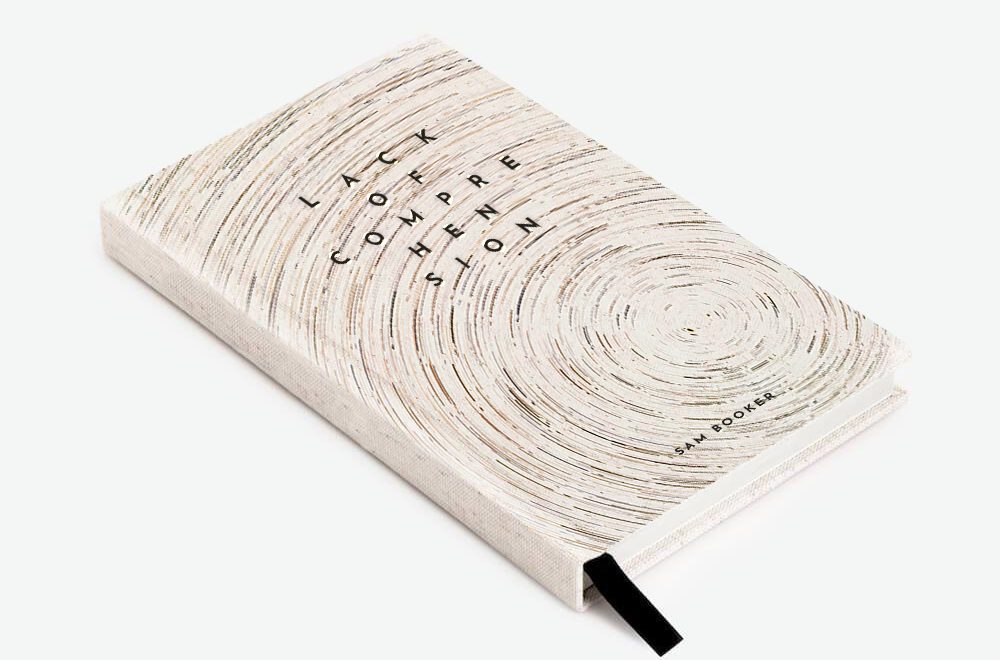 LACK
OF
COMPRE
HEN
SION
SAM BOOKER